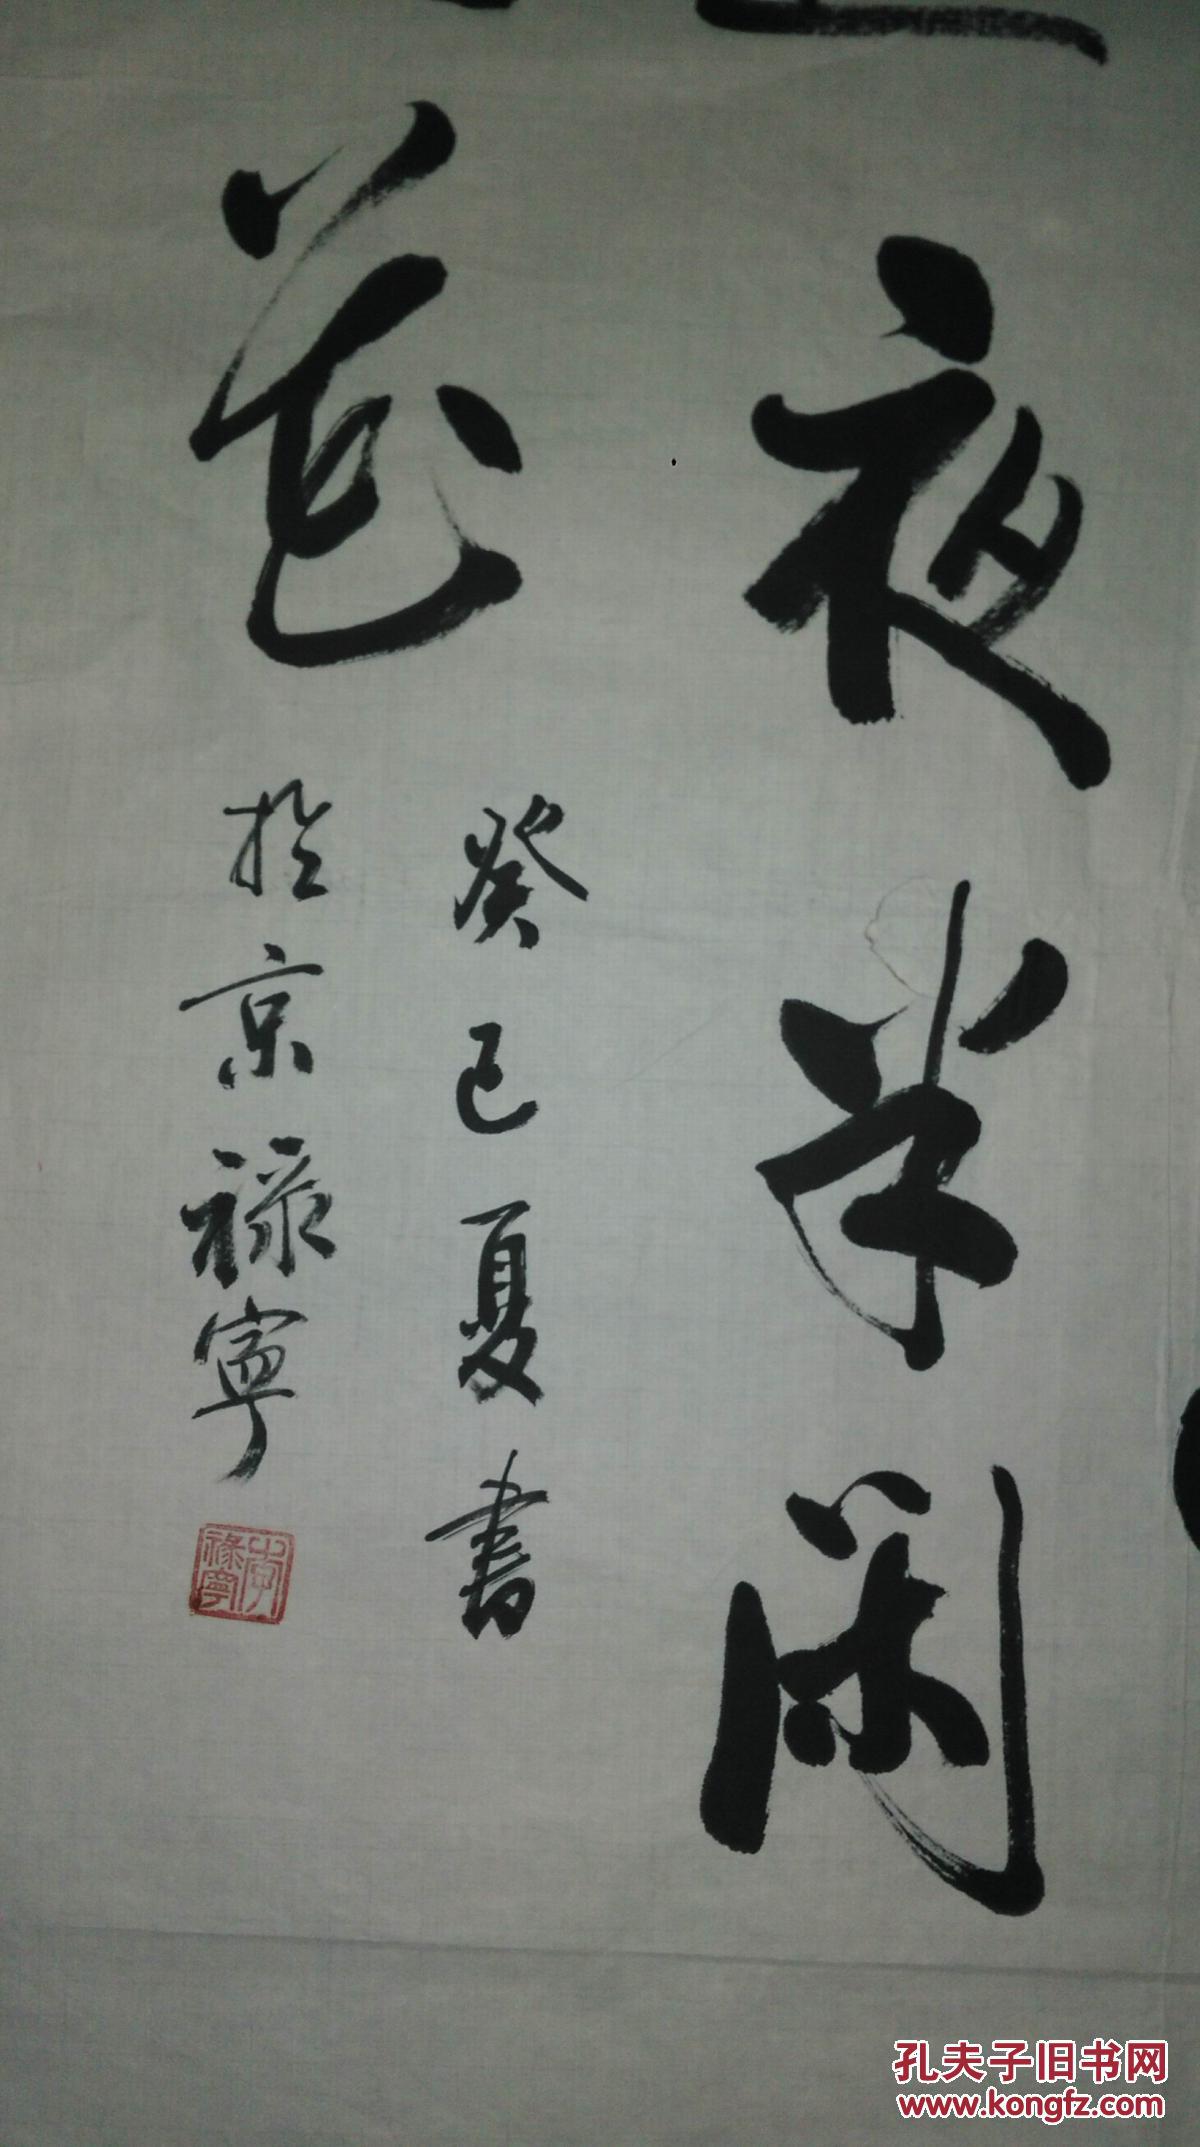 夜半闲
花
癸巳夏書
於京禄寧
禄寧
孔夫子旧书网
www.kongfz.com